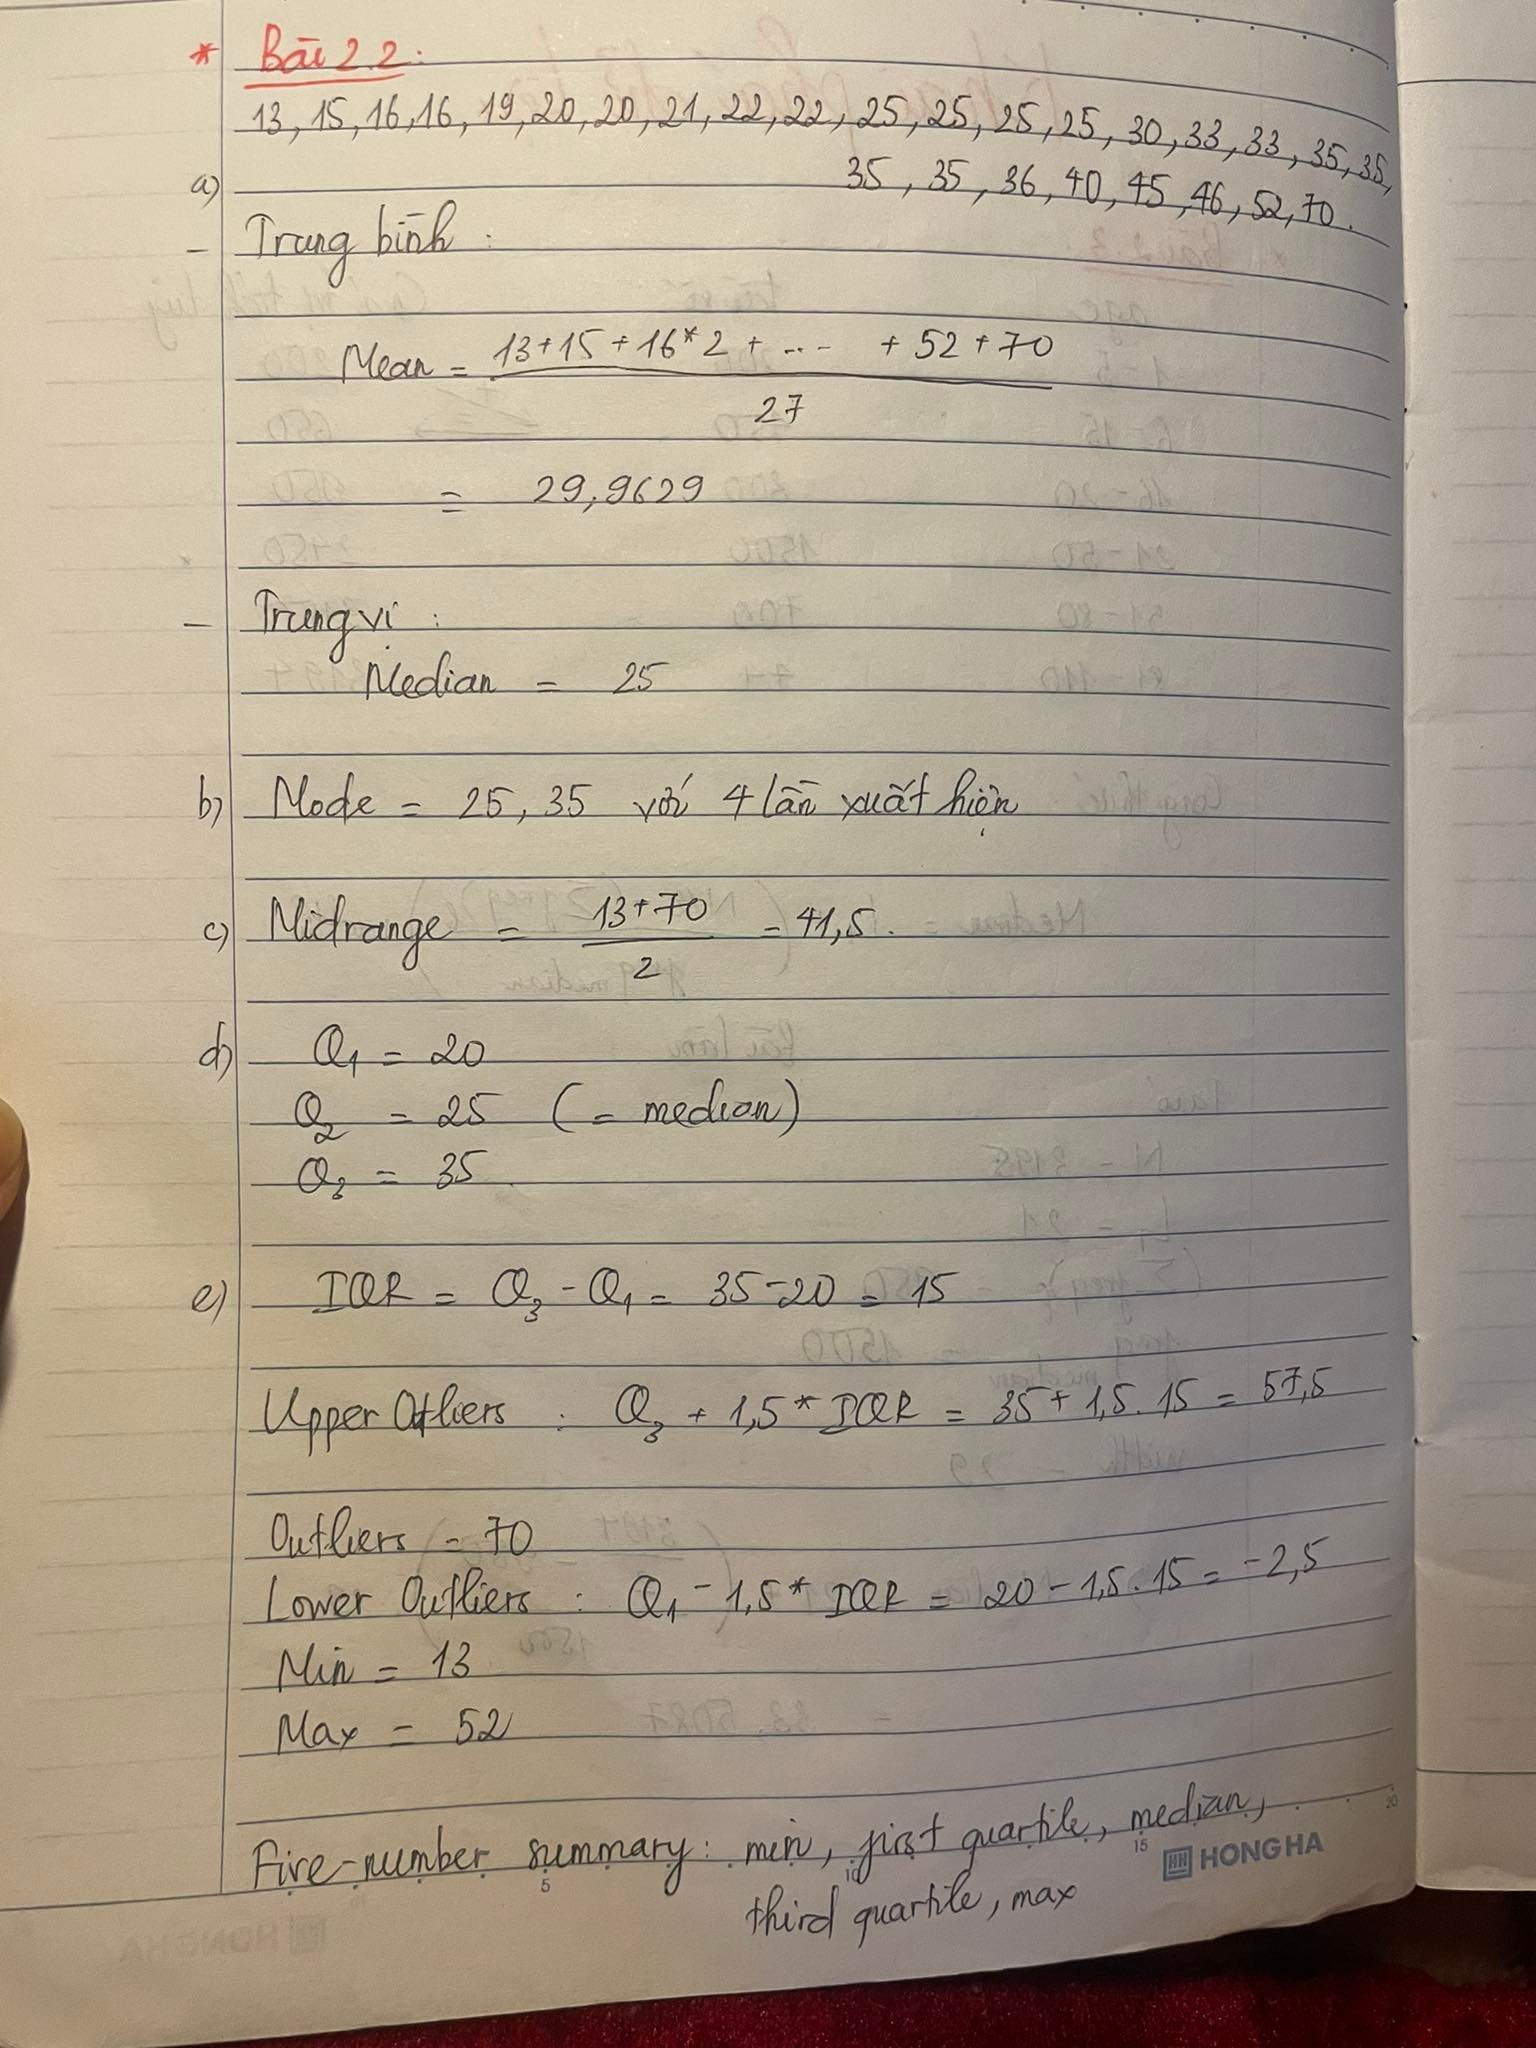 * Bài 2.2:
13, 15, 16, 16, 19, 20, 20, 21, 22, 22, 25, 25, 25, 25, 30, 33, 33, 35, 35,
35, 35, 36, 40, 45, 46, 52, 70.
a)
- Trung bình:
Mean = 13+15+16*2+... +52+70
27
= 29,9629
- Trung vị:
Median = 25
b) Mode = 25, 35 với 4 lần xuất hiện
c) Midrange = 13+70 = 41,5.
2
d) Q1 = 20
Q2 = 25 (= median)
Q3 = 35
e) IQR = Q3 - Q1 = 35-20 = 15
Upper Otliers : Q3 + 1,5* IQR = 35 + 1,5.15 = 57,5
Outliers = 70
Lower Outliers : Q1 - 1,5* IQR = 20 - 1,5.15 = -2,5
Min = 13
Max = 52
Five-number summary: min, first quartile, median,
third quartile, max
5 10 15 20
HONG HA